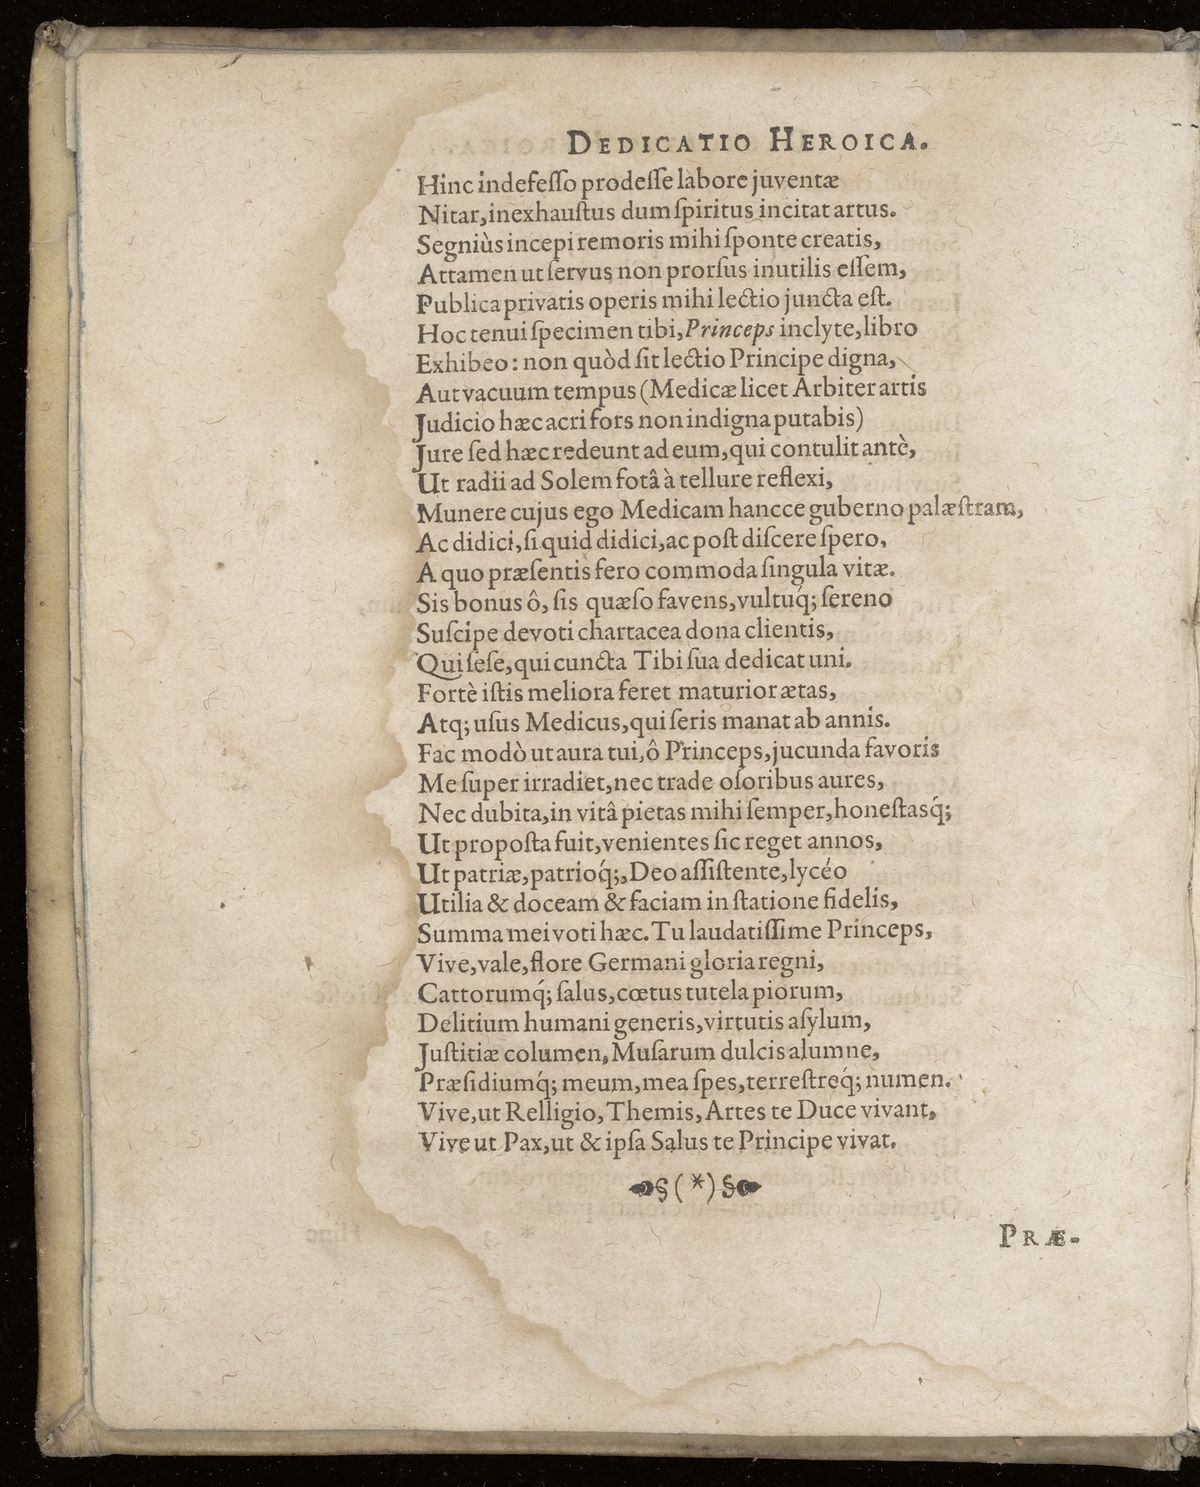 DEDICATIO HEROICA.
Hinc indefeſſo prodeſſe labore juventæ
Nitar, inexhauſtus dum ſpiritus incitat artus.
Segniùs incepi remoris mihi ſponte creatis,
Attamen ut ſervus non prorſus inutilis eſſem,
Publica privatis operis mihi lectio juncta eſt.
Hoc tenui ſpecimen tibi, Princeps inclyte, libro
Exhibeo: non quòd ſit lectio Principe digna,
Aut vacuum tempus (Medicæ licet Arbiter artis
Judicio hæc acri fors non indigna putabis)
Jure ſed hæc redeunt ad eum, qui contulit antè,
Ut radii ad Solem fotâ à tellure reflexi,
Munere cujus ego Medicam hancce guberno palæſtram,
Ac didici, ſi quid didici, ac poſt diſcere ſpero,
A quo præſentis fero commoda ſingula vitæ.
Sis bonus ô, ſis quæſo favens, vultuq́; ſereno
Suſcipe devoti chartacea dona clientis,
Qui ſeſe, qui cuncta Tibi ſua dedicat uni.
Fortè iſtis meliora feret maturior ætas,
Atq; uſus Medicus, qui ſeris manat ab annis.
Fac modò ut aura tui, ô Princeps, jucunda favoris
Me ſuper irradiet, nec trade oſoribus aures,
Nec dubita, in vitâ pietas mihi ſemper, honeſtasq́;
Ut propoſta fuit, venientes ſic reget annos,
Ut patriæ, patrioq́;, Deo aſſiſtente, lycéo
Utilia & doceam & faciam in ſtatione fidelis,
Summa mei voti hæc. Tu laudatiſſime Princeps,
Vive, vale, flore Germani gloria regni,
Cattorumq́; ſalus, cœtus tutela piorum,
Delitium humani generis, virtutis aſylum,
Juſtitiæ columen, Muſarum dulcis alumne,
Præſidiumq́; meum, mea ſpes, terreſtreq́; numen.
Vive, ut Relligio, Themis, Artes te Duce vivant,
Vive ut Pax, ut & ipſa Salus te Principe vivat.
§(*)§
PRÆ-